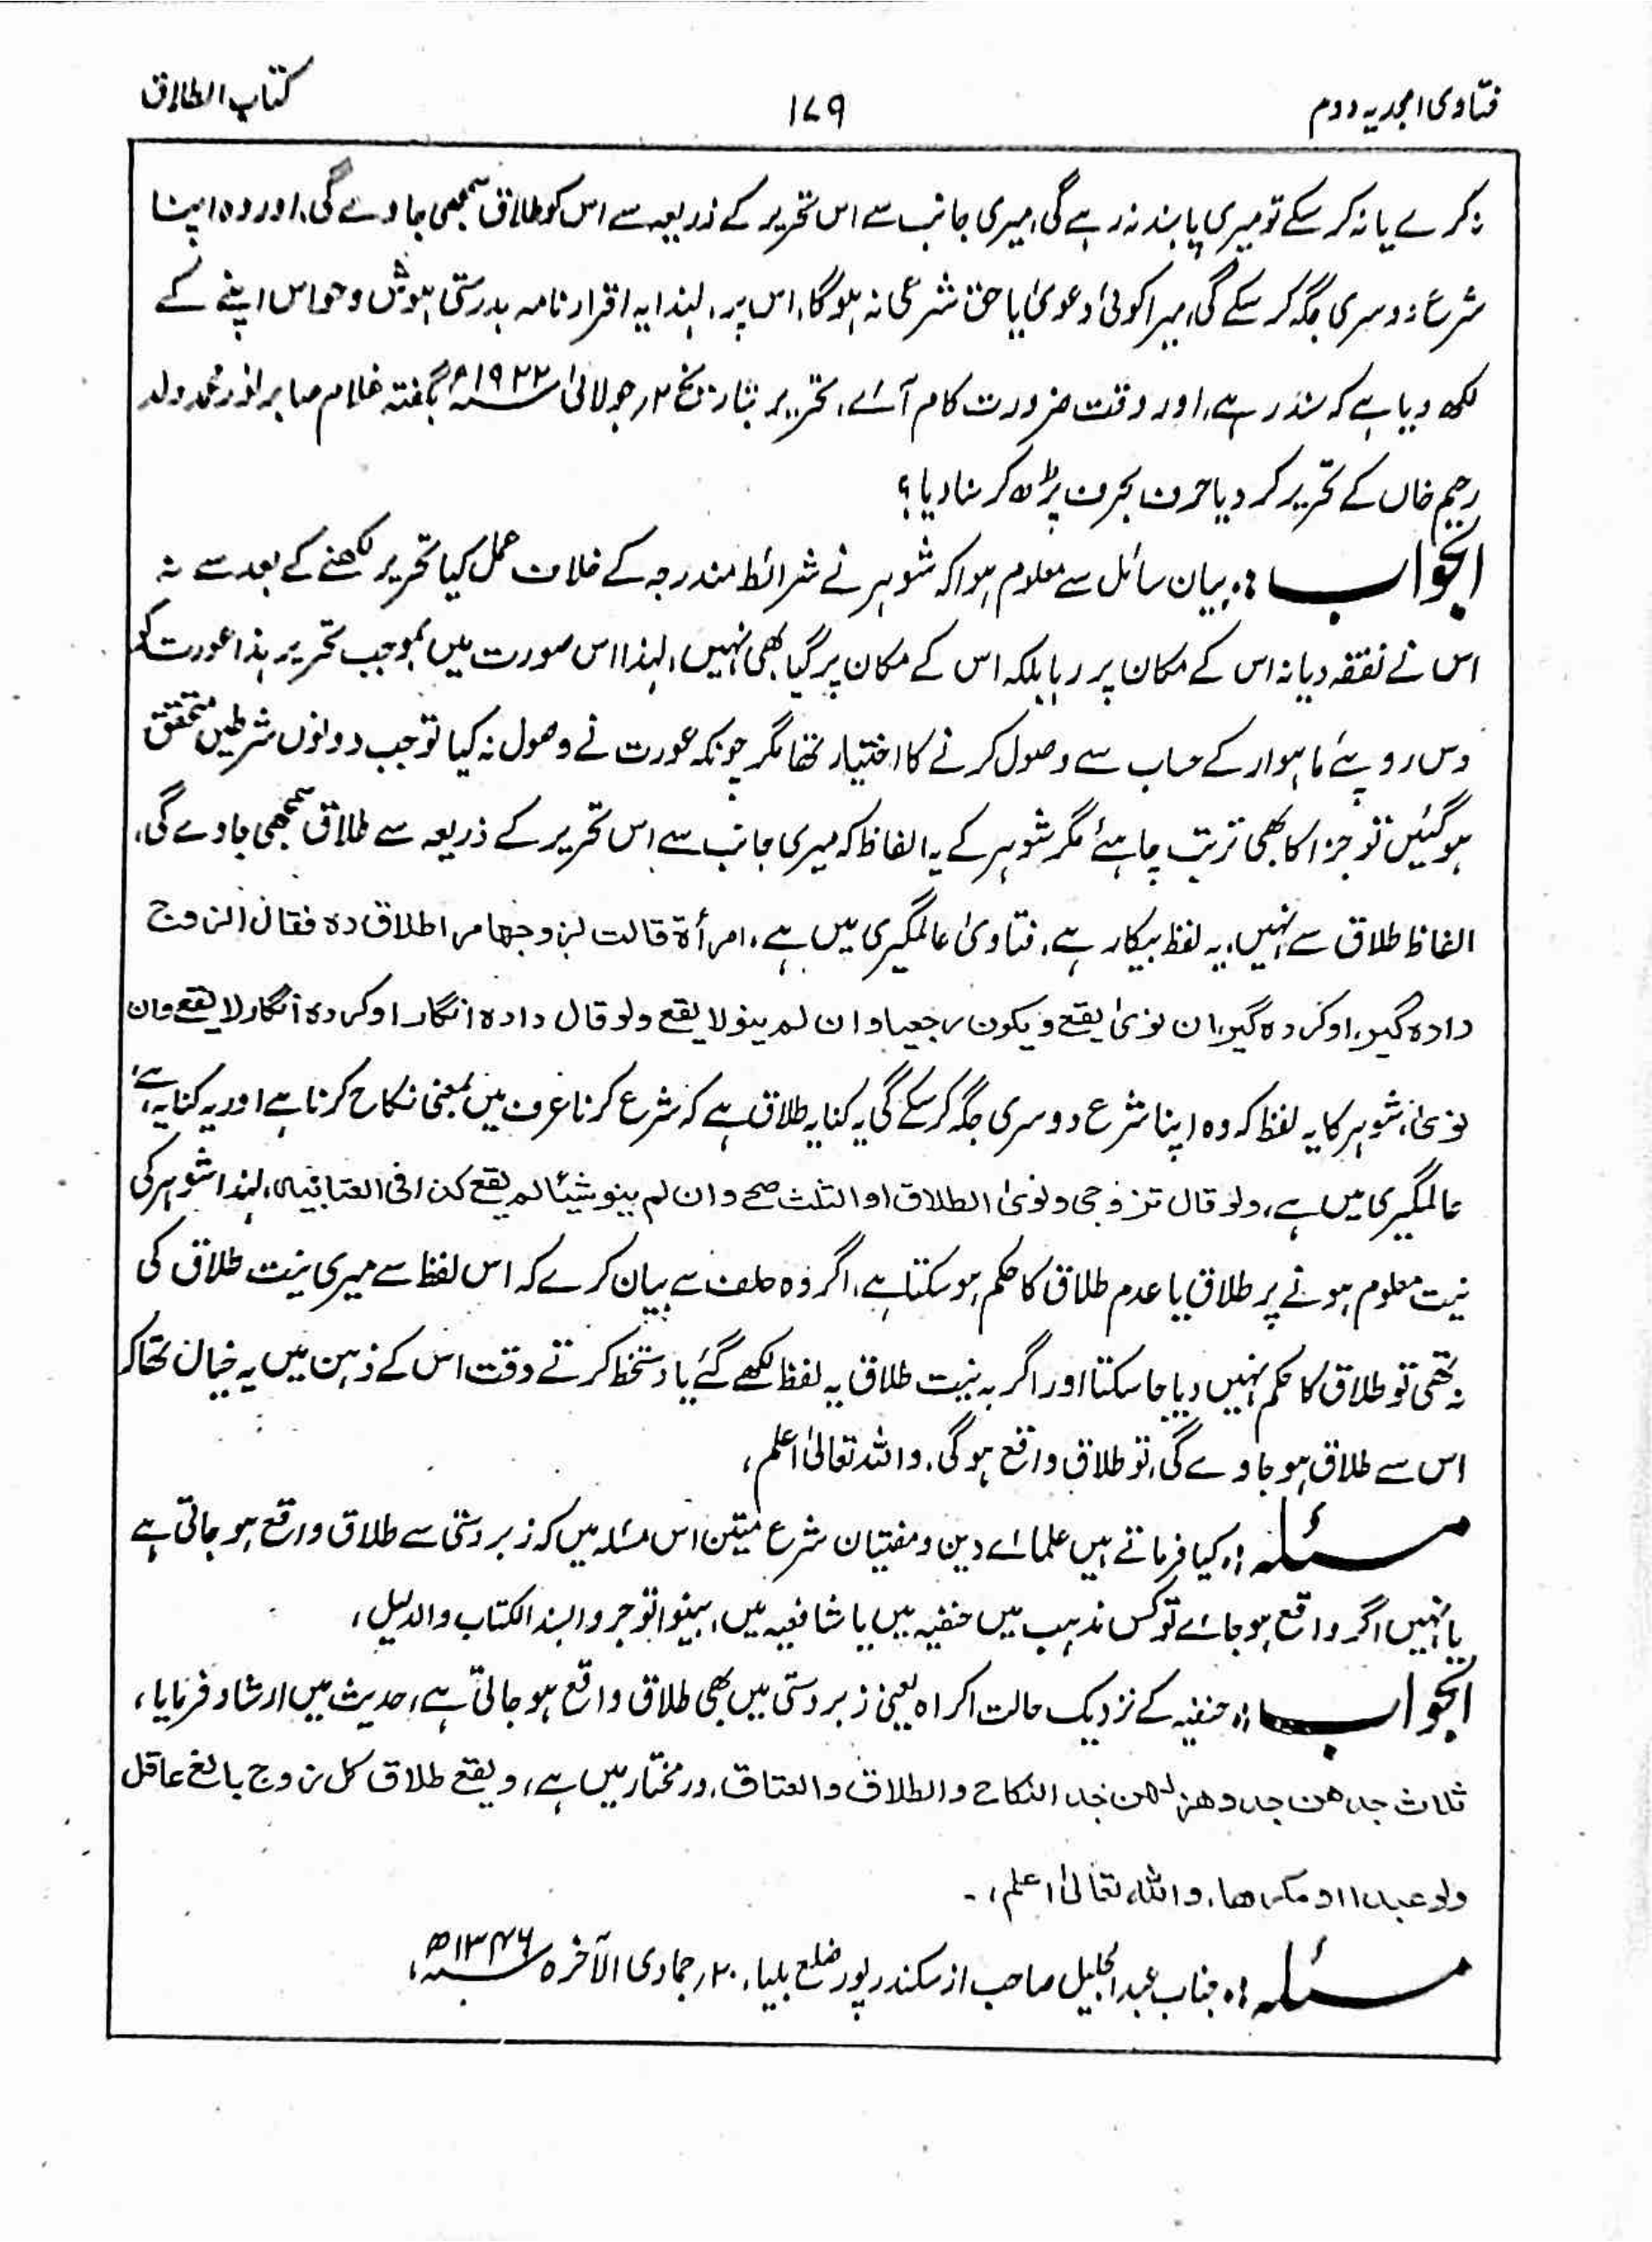 فتاویٰ امجدیہ دوم
۱۷۹
کتاب الطلاق
نہ کرے یا نہ کر سکے تو میری پابند نہ رہے گی، میری جانب سے اس تحریر کے ذریعہ سے اس کو طلاق سمجھی جاوے گی، اور وہ اپنا
شرع دوسری جگہ کر سکے گی، میرا کوئی دعویٰ یا حق شرعی نہ ہوگا، اس پر، لہٰذا یہ اقرار نامہ بدرستی ہوش و حواس اپنے کے
لکھ دیا ہے کہ سند رہے، اور وقت ضرورت کام آئے، تحریر بتاریخ ۲؍جولائی ۱۹۲۲ء بگفتہ غلام صابر انور محمد ولد
رحیم خاں کے تحریر کر دیا حرف بحرف پڑھ کر سنا دیا؟
الجواب :۔ بیان سائل سے معلوم ہوا کہ شوہر نے شرائط مندرجہ کے خلاف عمل کیا تحریر لکھنے کے بعد سے نہ
اس نے نفقہ دیا نہ اس کے مکان پر رہا بلکہ اس کے مکان پر گیا بھی نہیں، لہٰذا اس صورت میں بموجب تحریر ہذا عورت کو
دس روپئے ماہوار کے حساب سے وصول کرنے کا اختیار تھا مگر چونکہ عورت نے وصول نہ کیا تو جب دونوں شرطیں متحقق
ہوگئیں تو جزا کا بھی ترتب چاہئے مگر شوہر کے یہ الفاظ کہ میری جانب سے اس تحریر کے ذریعہ سے طلاق سمجھی جاوے گی،
الفاظ طلاق سے نہیں، یہ لفظ بیکار ہے، فتاویٰ عالمگیری میں ہے، امرأة قالت لزوجها مرا طلاق ده فقال الزوج
داده گیر، او کرده گیر، ان نویٰ یقع و یکون رجعیا و ان لم ینو لا یقع ولو قال داده انگار او کرده انگار لا یقع وان
نویٰ، شوہر کا یہ لفظ کہ وہ اپنا شرع دوسری جگہ کر سکے گی یہ کنایہ طلاق ہے کہ شرع کرنا عرف میں بمعنی نکاح کرنا ہے اور یہ کنایہ ہے،
عالمگیری میں ہے، ولو قال تزوجی ونویٰ الطلاق او الثلث صح وان لم ینو شیئا لم یقع کذا فی العتابیة، لہٰذا شوہر کی
نیت معلوم ہونے پر طلاق یا عدم طلاق کا حکم ہو سکتا ہے، اگر وہ حلف سے بیان کرے کہ اس لفظ سے میری نیت طلاق کی
نہ تھی تو طلاق کا حکم نہیں دیا جا سکتا اور اگر بہ نیت طلاق یہ لفظ لکھے گئے یا دستخط کرتے وقت اس کے ذہن میں یہ خیال تھا کہ
اس سے طلاق ہو جاوے گی، تو طلاق واقع ہوگی، واللہ تعالیٰ اعلم،
مسئلہ :۔ کیا فرماتے ہیں علمائے دین و مفتیان شرع متین اس مسئلہ میں کہ زبردستی سے طلاق واقع ہو جاتی ہے
یا نہیں اگر واقع ہو جائے تو کس مذہب میں حنفیہ میں یا شافعیہ میں، بینوا توجروا بسند الکتاب والدلیل،
الجواب :۔ حنفیہ کے نزدیک حالت اکراہ یعنی زبردستی میں بھی طلاق واقع ہو جاتی ہے، حدیث میں ارشاد فرمایا،
ثلاث جدهن جد وهزلهن جد النکاح والطلاق والعتاق، درمختار میں ہے، ویقع طلاق کل زوج بالغ عاقل
ولو عبدا او مکرها، واللہ تعالیٰ اعلم،۔
مسئلہ :۔ جناب عبدالجلیل صاحب از سکندرپور ضلع بلیا، ۲۰؍جمادی الآخرہ ۱۳۴۶ھ،